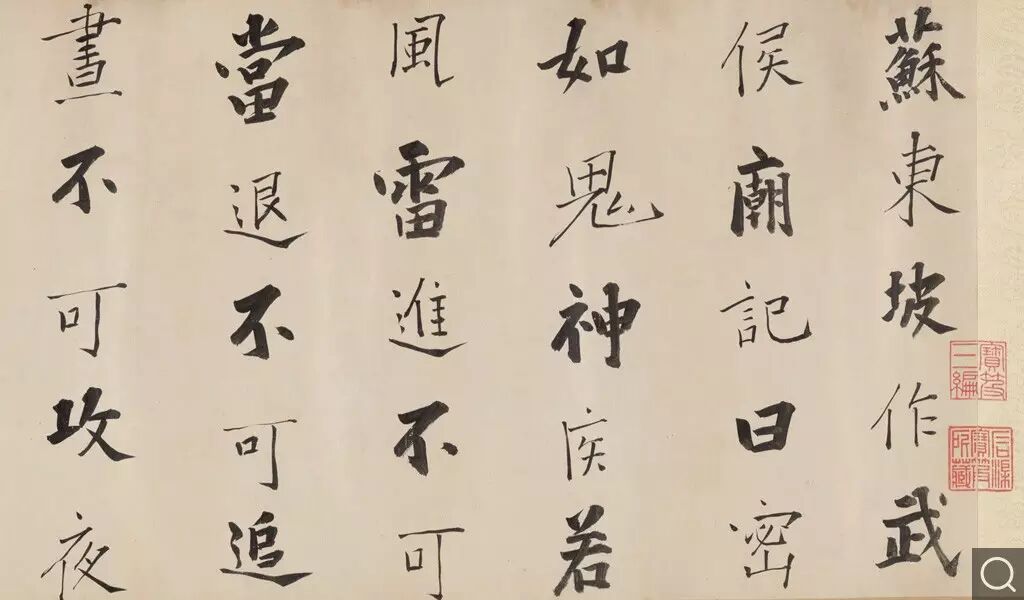 蘇東坡作武
侯廟記曰密
如鬼神疾若
風雷進不可
當退不可追
晝不可攻夜
寶笈三編
石渠寶笈所藏